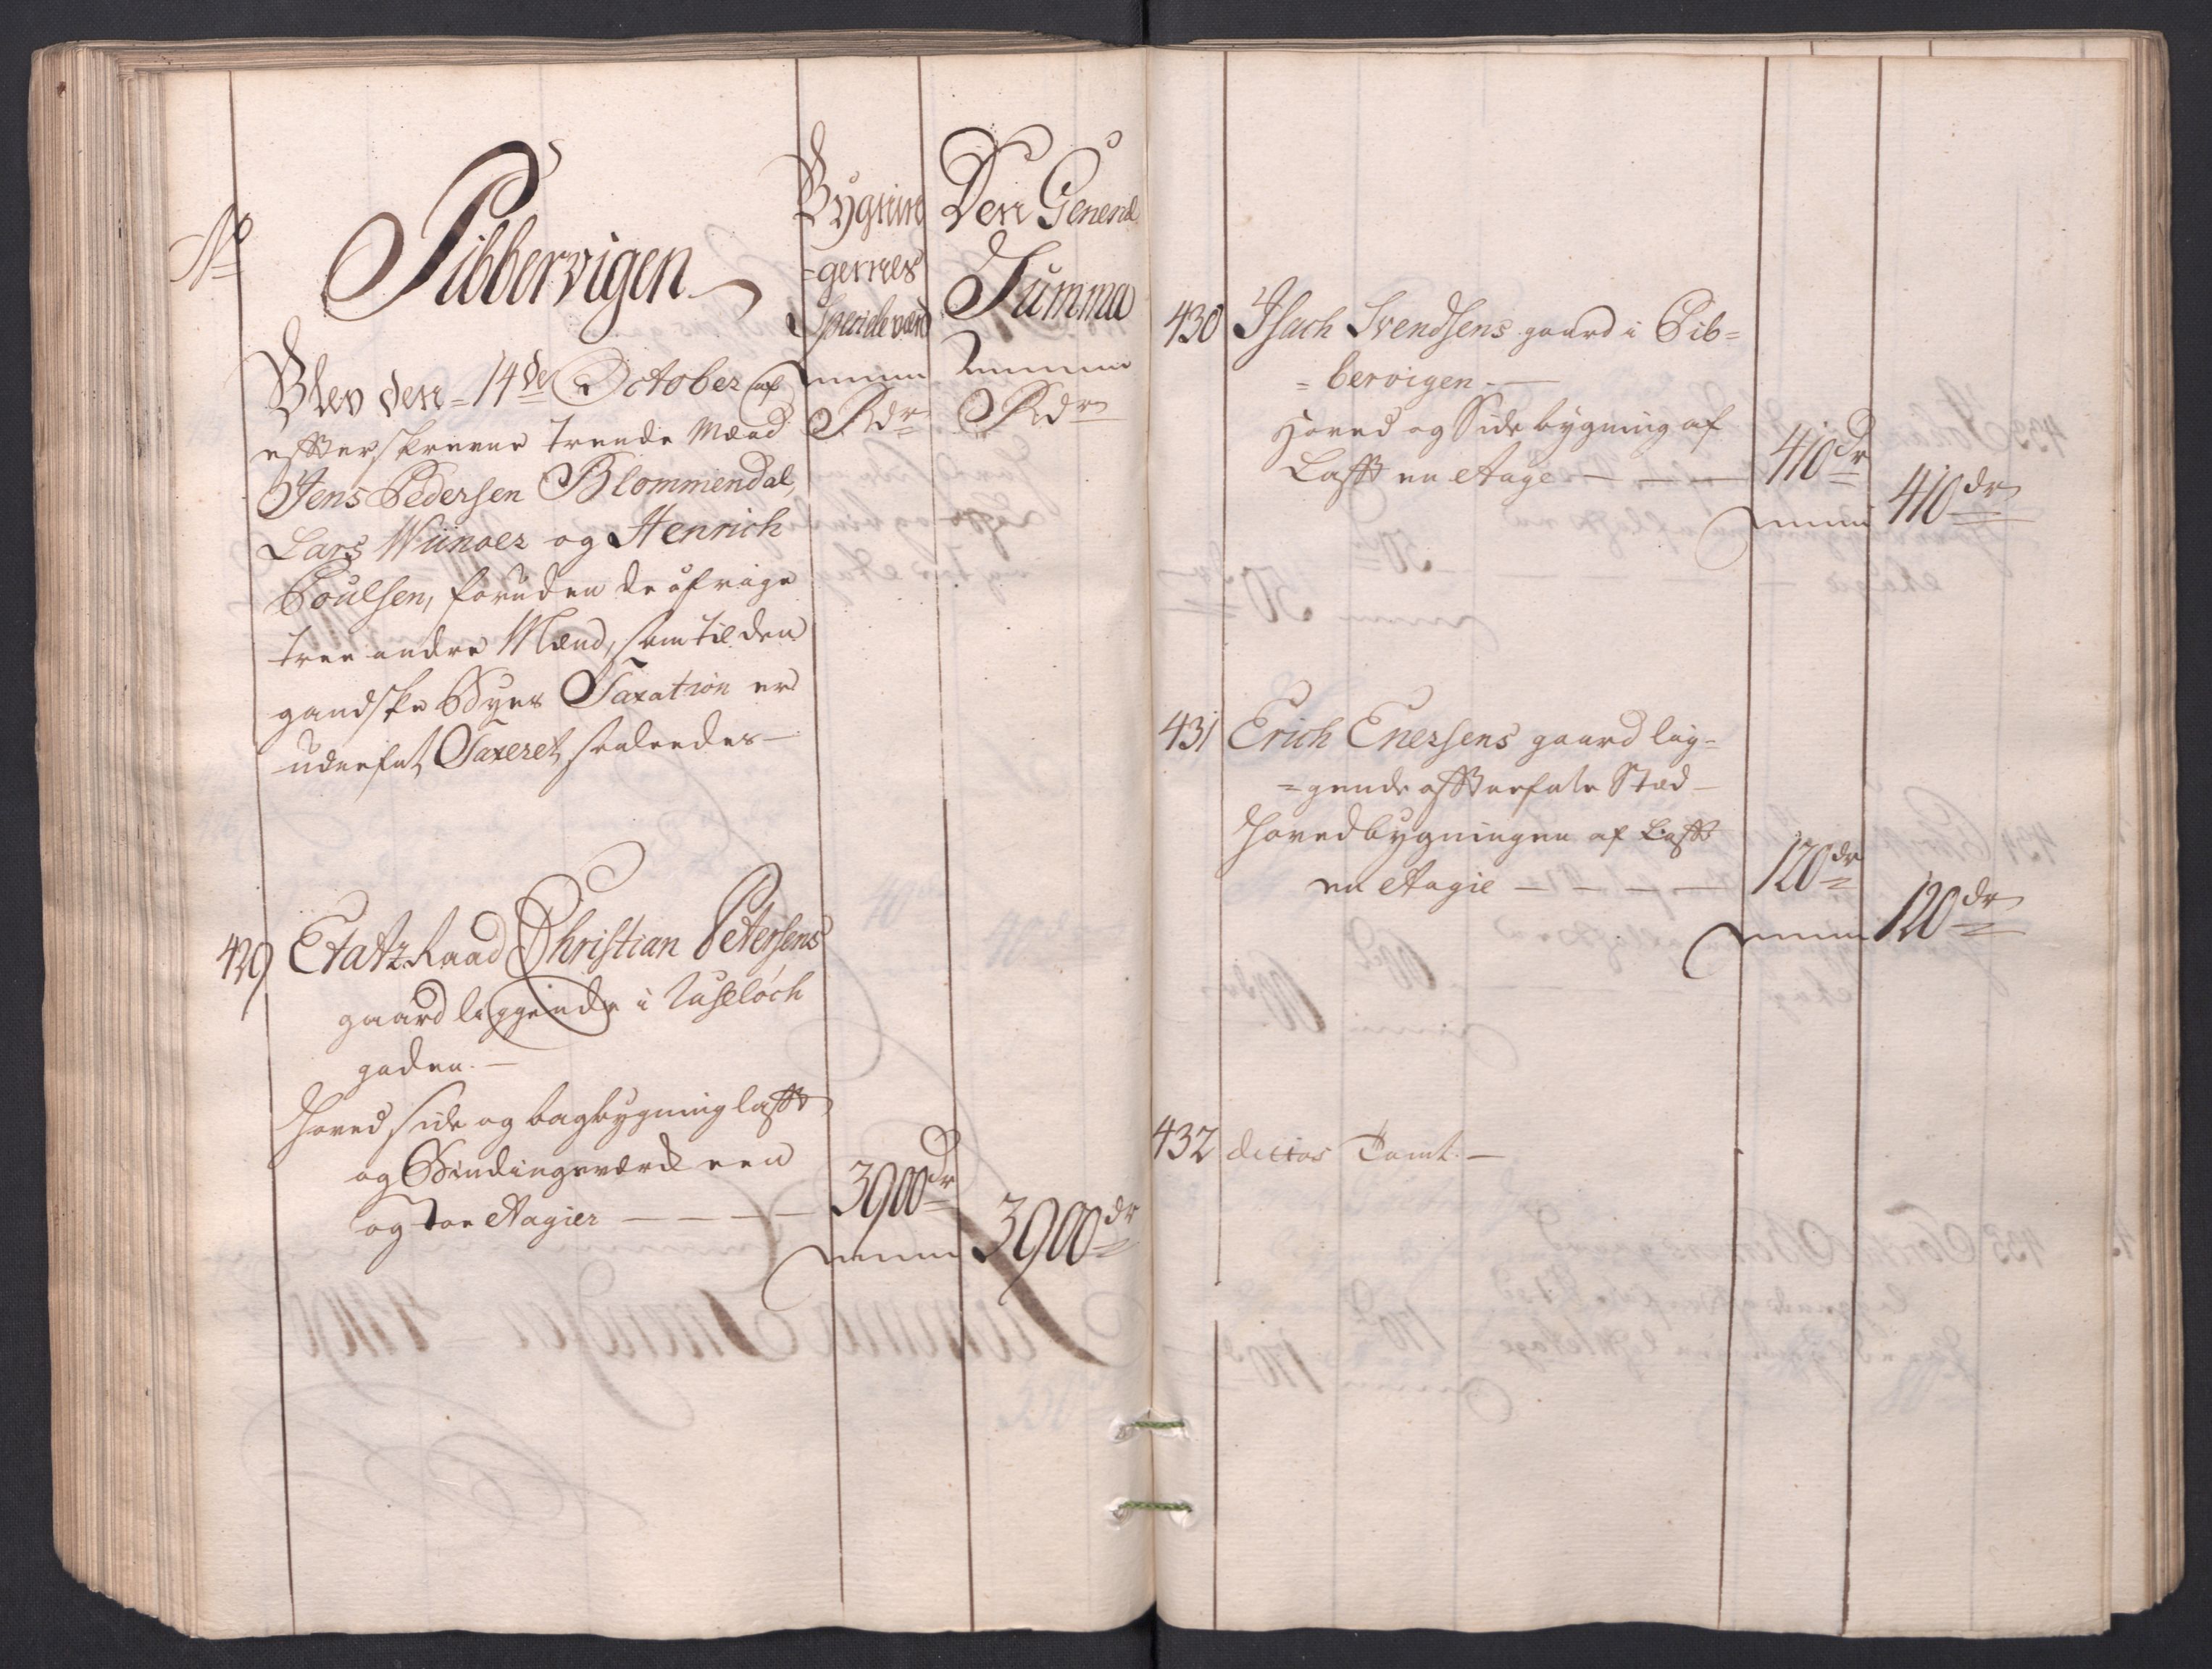 No
Pibbervigen
Bygnin
=gernes
Speciele værd
Den General
Summa
Rdr
Rdr
Blev den 14de October af
effterskrevne trende Mænd
Jens Pedersen Blommendal,
Lars Wiinaer og Henrich
Poulsen, foruden de øfrige
tree andre Mænd, som til den
gandske Byes Taxation er
udnefnt, Taxeret saaledes
429 EtatzRaad Christian Petersens
gaard liggende i Ruseløch
gaden.
Hoved side og bagbygning lafft
og Bindingsværck een
og toe Etagier 3900dr
3900dr
430 Isach Svendsens gaard i Pib=
=bervigen
Hoved og Sidebygning af
Lafft en Etage 410dr
410dr
431 Erich Enersens gaard lig=
=gende østenfor Sted
Hovedbygningen af Lafft
en Etagie 120dr
120dr
432 dittos Tomt.